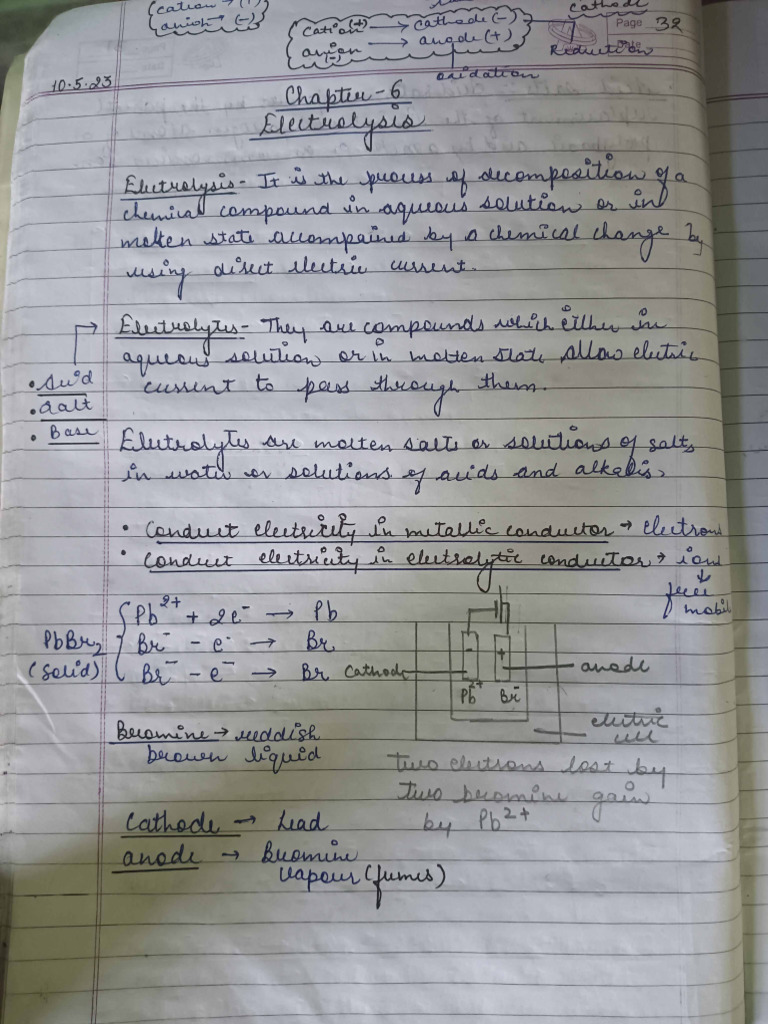 cation → (+)
anion → (-)
cation (+) → cathode (-)
anion (-) → anode (+)
cathode
Reduction
oxidation
Page 32
10.5.23
Chapter-6
Electrolysis
Electrolysis - It is the process of decomposition of a
chemical compound in aqueous solution or in
molten state accompained by a chemical change by
using direct electric current.
Electrolytes - They are compounds which either in
aqueous solution or in molten state allow electric
current to pass through them.
• Acid
• Salt
• Base
Electrolytes are molten salts or solutions of salts
in water or solutions of acids and alkalis.
• Conduct electricity in metallic conductor → electrons
• Conduct electricity in electrolytic conductor → ions
free
mobil
PbBr₂
(solid)
Pb²⁺ + 2e⁻ → Pb
Br⁻ - e⁻ → Br
Br⁻ - e⁻ → Br
cathode
-
+
anode
Pb²⁺ Br⁻
electric
cell
Bromine → reddish
brown liquid
two electrons lost by
two bromine gain
by Pb²⁺
Cathode → Lead
anode → Bromine
vapour (fumes)